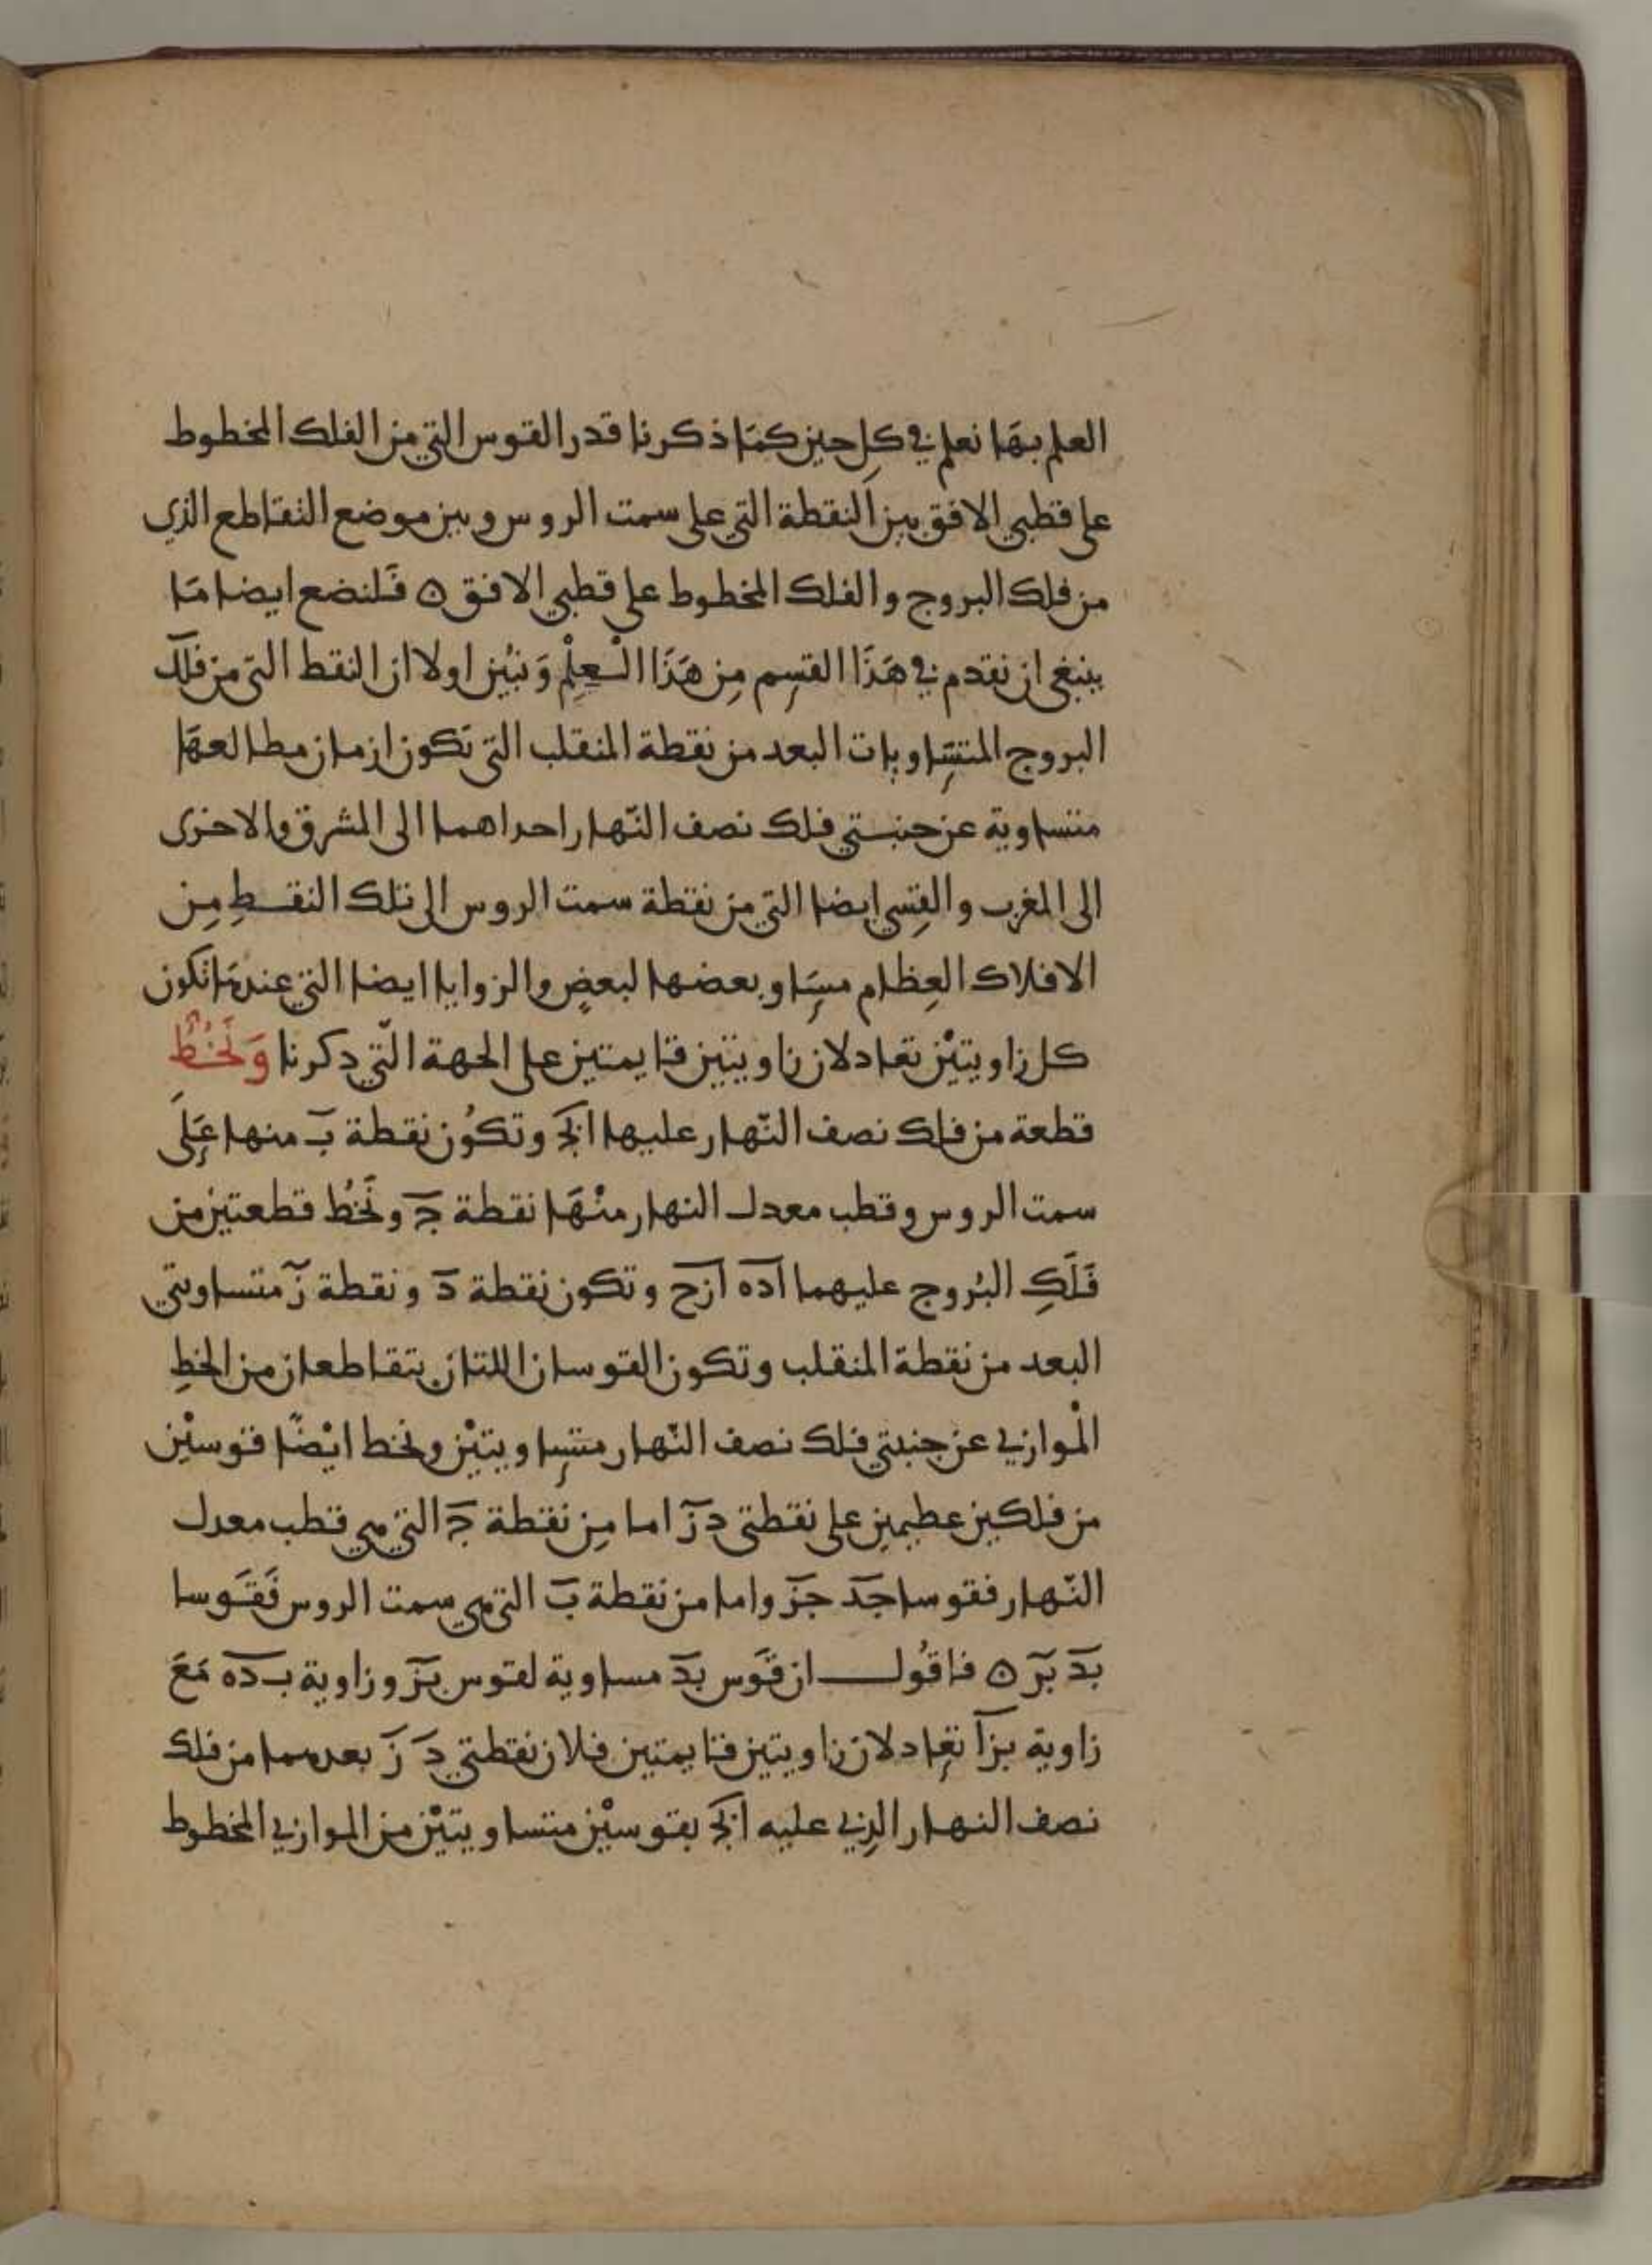 العلم بهَا نعلم في كلِ حين كمَا ذكرنا قدر القوس التي من الفلك المخطوط
على قطبي الافق بين النقطة التي على سمت الروس وبين موضع التقاطع الذي
من فلك البروج والفلك المخطوط على قطبي الافق ه فَلنضع ايضا مَا
ينبغي ان نقدم في هَذَا القسِم مِن هَذَا الْعِلْمِ وَنبُين اولا ان النقط التي من فلك
البروج المتسَاويات البعد من نقطة المنقلب التي تكون ازمان مطالعهَا
متساوية عن جنبتي فلك نصف النّهار احداهما الى المشرق والاخرى
الى المغرب والقِسي ايضا التي من نقطة سمت الروس الى تلك النقطِ مِن
الافلاك العِظام مسَاو بعضها لبعضٍ والزوايا ايضا التي عندهَا تكون
كل زاويتيْن تعادلان زاويتين قايمتين على الجهة الّتي ذكرنا وَنَخُطُّ
قطعة من فلك نصف النّهار عليها ابج وتكوُن نقطة ب منها عَلَى
سمت الروس وقطب معدل النهار منْهَا نقطة ج ونَخُط قطعتين من
فَلَكِ البُروج عليهما اده ازح وتكون نقطة د ونقطة ز متساويتي
البعد من نقطة المنقلب وتكون القوسان اللتان يتقاطعان من الخطِ
الْموازي عن جنبتي فلك نصف النّهار متسِاويتيْن ونخط ايْضًا قوسيْن
من فلكين عظيمين على نقطتي د ز اما مِن نقطة ج التي هي قطب معدل
النّهار فقوسا جد جز واما من نقطة ب التي هي سمت الروس فَقَوسا
بد بز ه فاقُول ان قَوس بد مساوية لقوس بز وزاوية ب ده مَعَ
زاوية بزا تعَادلان زاويتين قايمتين فلان نقطتي د ز بعدهما من فلك
نصف النهار الذِي عليه ابج بقوسيْن متساويتيْن من الموازي المخطوط